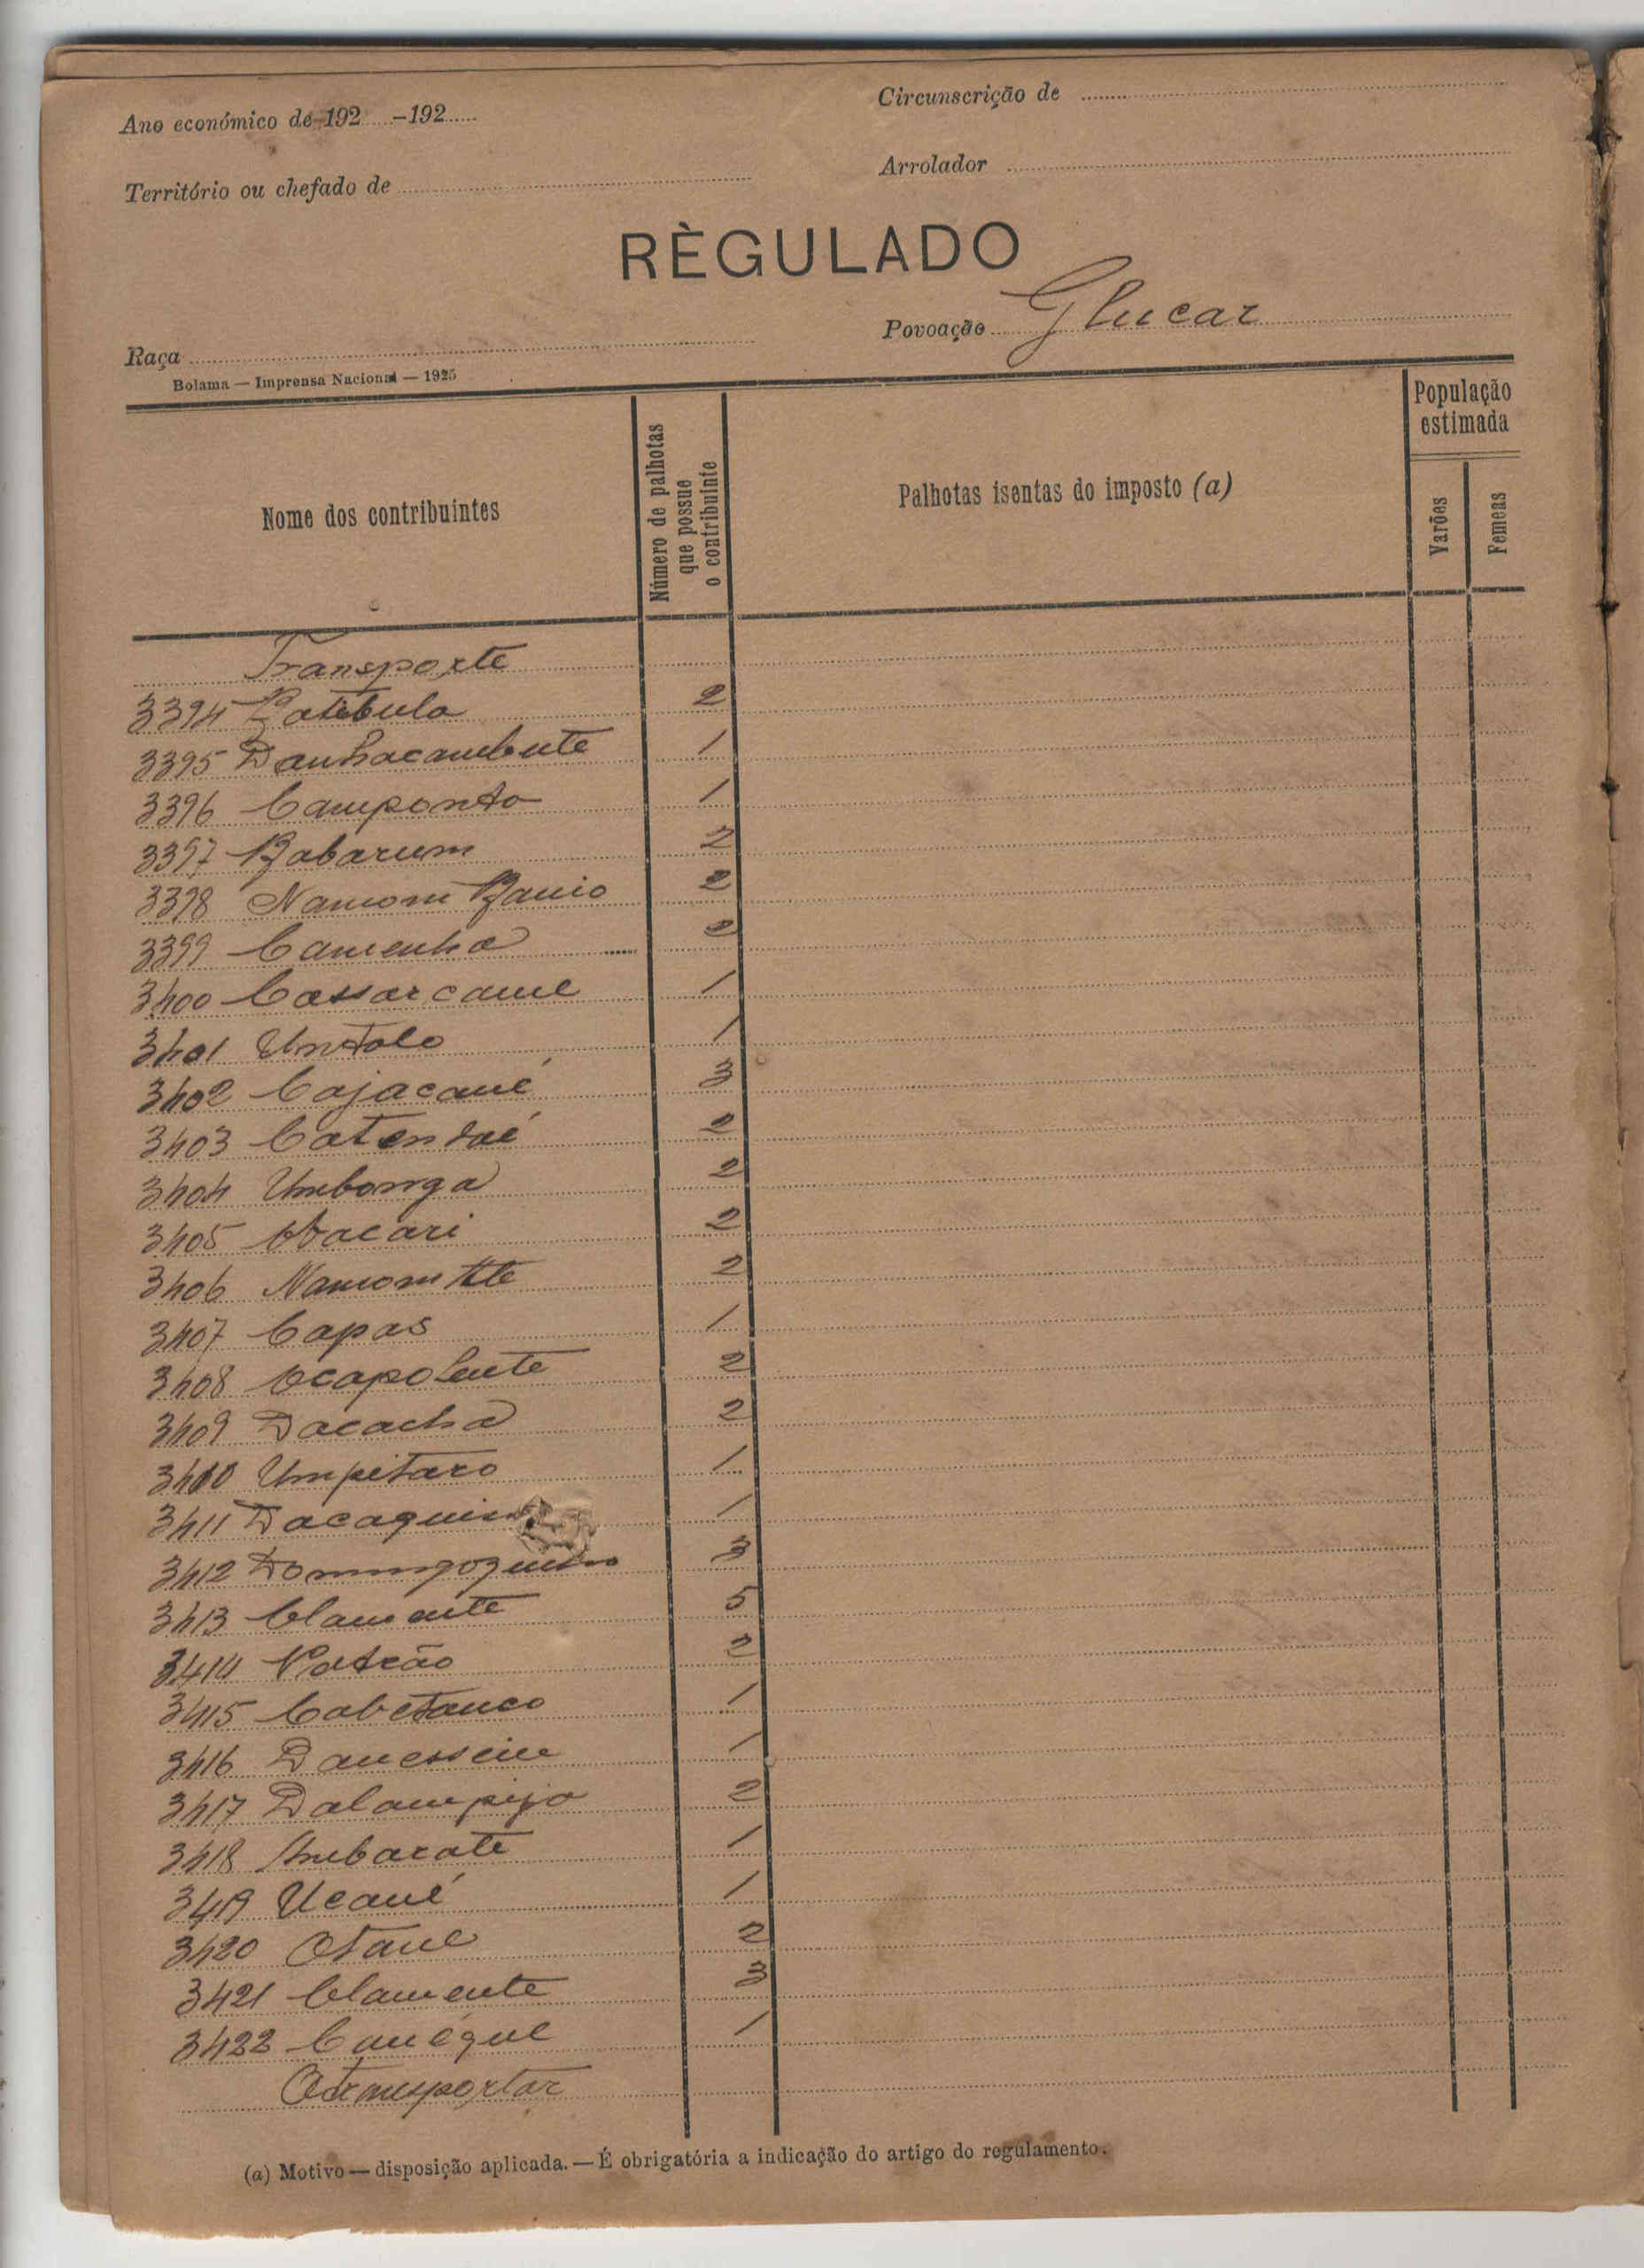 Ano económico de 192 -192
Circunscrição de
Território ou chefado de
Arrolador
RÈGULADO
Raça
Povoação Glucar
Bolama — Imprensa Nacional — 1925
Nome dos contribuintes
Número de palhotas que possue o contribuinte
Palhotas isentas do imposto (a)
População estimada
Varões
Femeas
Transporte
3394 Batibula 2
3395 Danhacambute 1
3396 Camponto 1
3397 Babarum 2
3398 Namom Banio 2
3399 Camenha 2
3400 Cassarcame 1
3401 Untolo 1
3402 Cajacané 3
3403 Catendaé 2
3404 Umbonga 2
3405 2
3406 Namom 2
3407 Capas 1
3408 2
3409 Dacacha 2
3410 Umpitaro 1
3411 1
3412 3
3413 Clamente 5
3414 Patrão 2
3415 Cabetanco 1
3416 1
3417 Dalampijo 2
3418 Umbarate 1
3419 Ucané 1
3420 Otane 2
3421 Clamente 3
3422 Canégue 1
A transportar
(a) Motivo — disposição aplicada. — É obrigatória a indicação do artigo do regulamento.